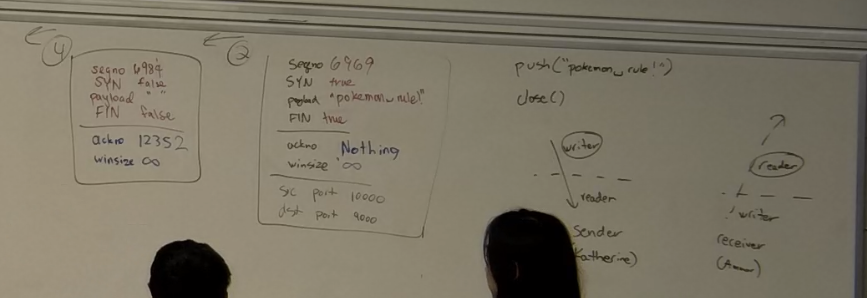 4
segno 6984
SYN false
payload " "
FIN false
ackno 12352
winsize ∞
2
segno 6969
SYN true
payload "pokemon␣rule!"
FIN true
ackno Nothing
winsize ∞
src port 10000
dest port 9000
push("pokemon␣rule!")
close()
writer
reader
sender
Katherine)
reader
writer
receiver